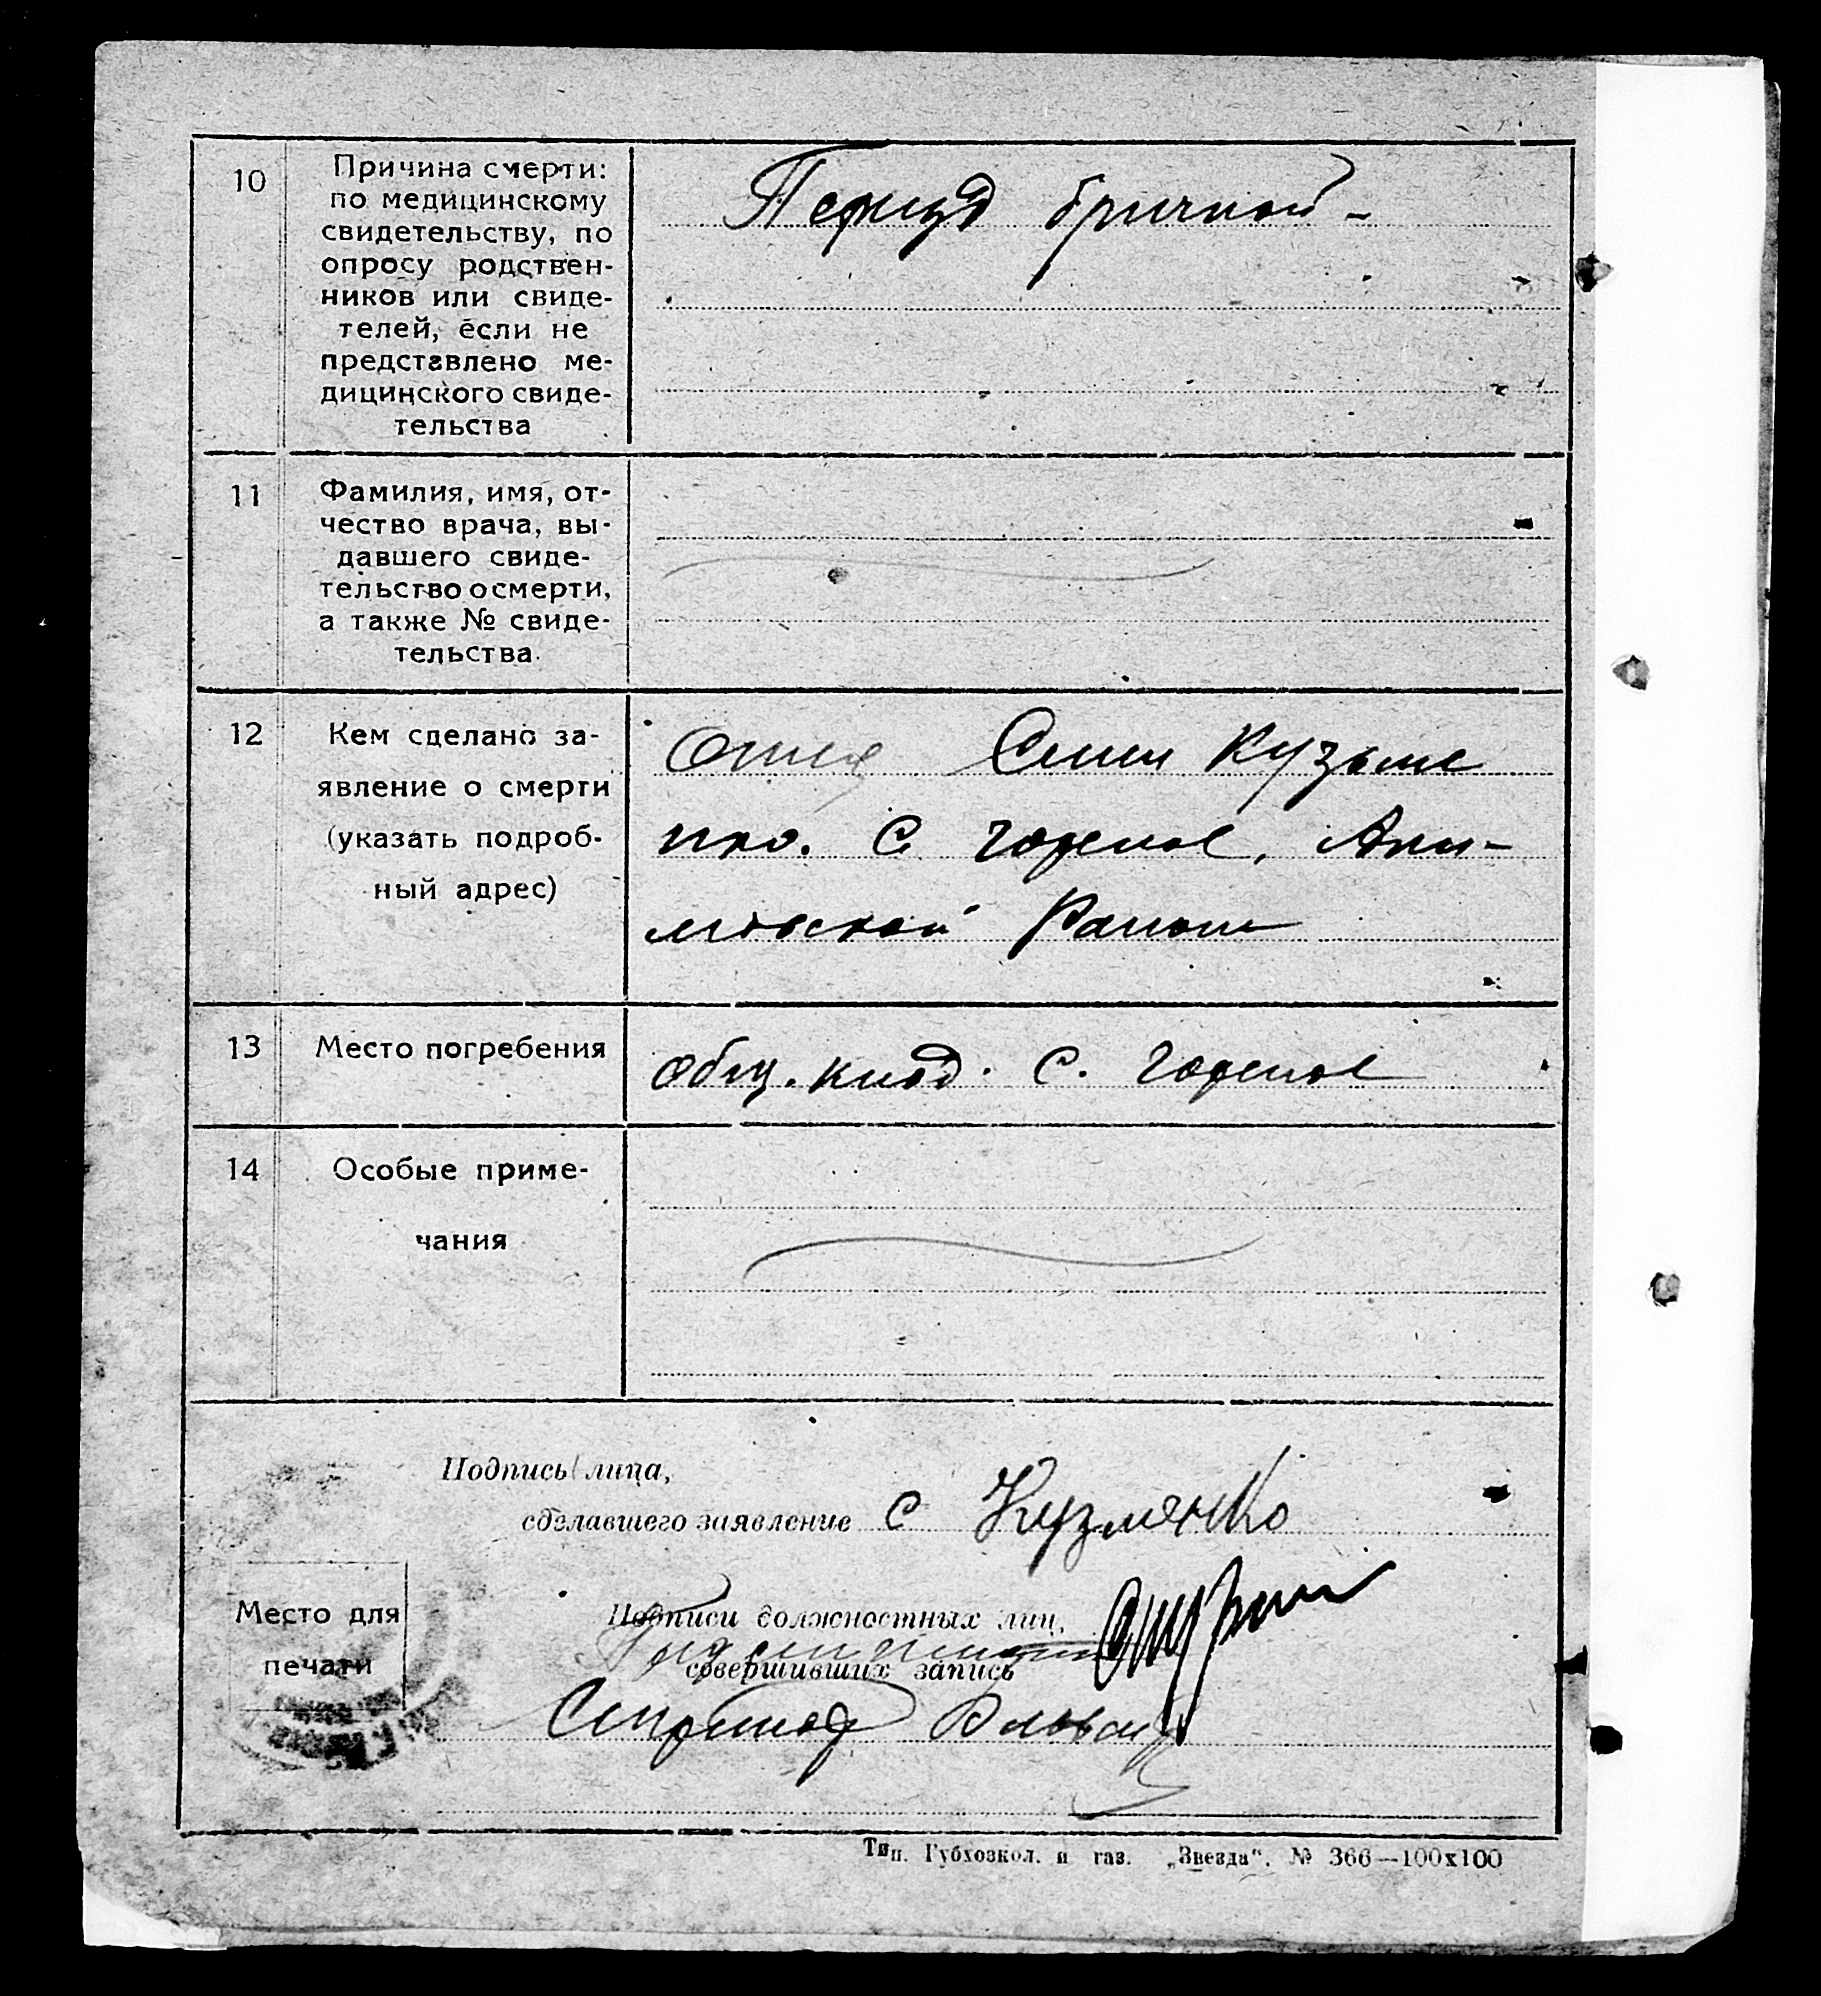 10
Причина смерти:
по медицинскому
свидетельству, по
опросу родствен-
ников или свиде-
телей, если не
представлено ме-
дицинского свиде-
тельства
бричкой -
11
Фамилия, имя, от-
чество врача, вы-
давшего свиде-
тельство о смерти,
а также № свиде-
тельства
12
Кем сделано за-
явление о смерти
(указать подроб-
ный адрес)
отец Семен Кузьме
нко. С Горелое, Аки-
мовской Району
13
Место погребения
общ. клад. с. Горелое
14
Особые приме-
чания
Подпись лица,
сделавшего заявление С Кузмэнко
Место для
печати
Подписи должностных лиц,
совершивших запись
Тип. Губхозкол. и газ. „Звезда“. № 366—100x100